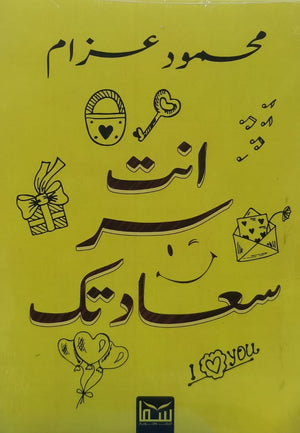 محمود عزام
انت
سر
سعادتك
I YOU
سما